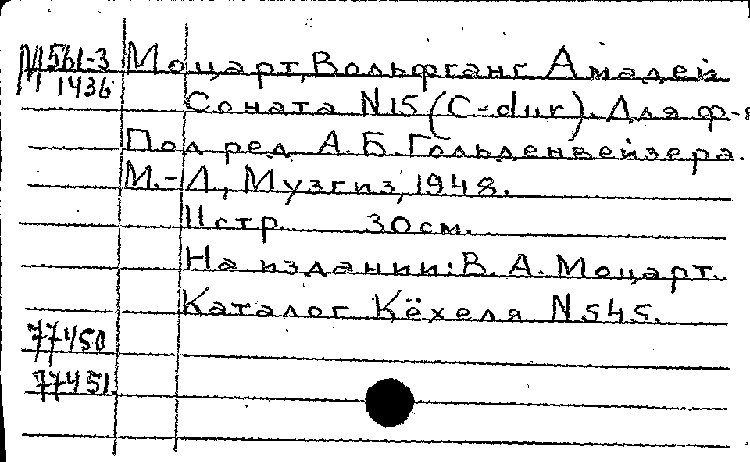 М 561-3 Моцарт, Вольфганг Амадей
1436
Соната N15 (C-dur). Для ф-
Под ред. А.Б.Гольденвейзера.
М.-Л., Музгиз, 1948.
11стр. 30см.
На издании: В. А. Моцарт.
Каталог Кёхеля N 545.
77450
77451